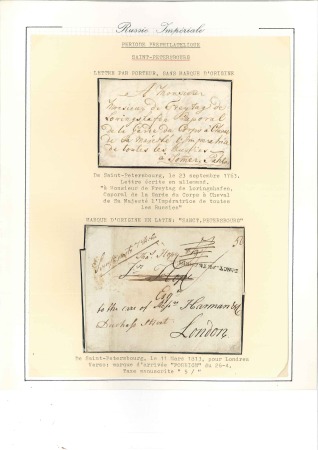 Russie Impériale
PERIODE PREPHILATELIQUE
SAINT-PETERSBOURG
LETTRE PAR PORTEUR, SANS MARQUE D'ORIGINE
A Monsieur
Monsieur de Freytag de
Lovingshafen Caporal
de la Garde du Corps à Cheval
de Sa Majesté l'Imperatrice
de toutes les Russies
De Saint-Petersbourg, le 23 septembre 1763.
Lettre écrite en allemand.
"A Monsieur de Freytag de Lovingshafen,
Caporal de la Garde du Corps à Cheval
de Sa Majesté l'Impératrice de toutes
les Russies"
MARQUE D'ORIGINE EN LATIN: "SANCT.PETERSBOURG"
Esq
to the care of Messrs Harman & Co
London
De Saint-Petersbourg, le 11 Mars 1813, pour Londres
Verso: marque d'arrivée "FOREIGN" du 26-4.
Taxe manuscrite